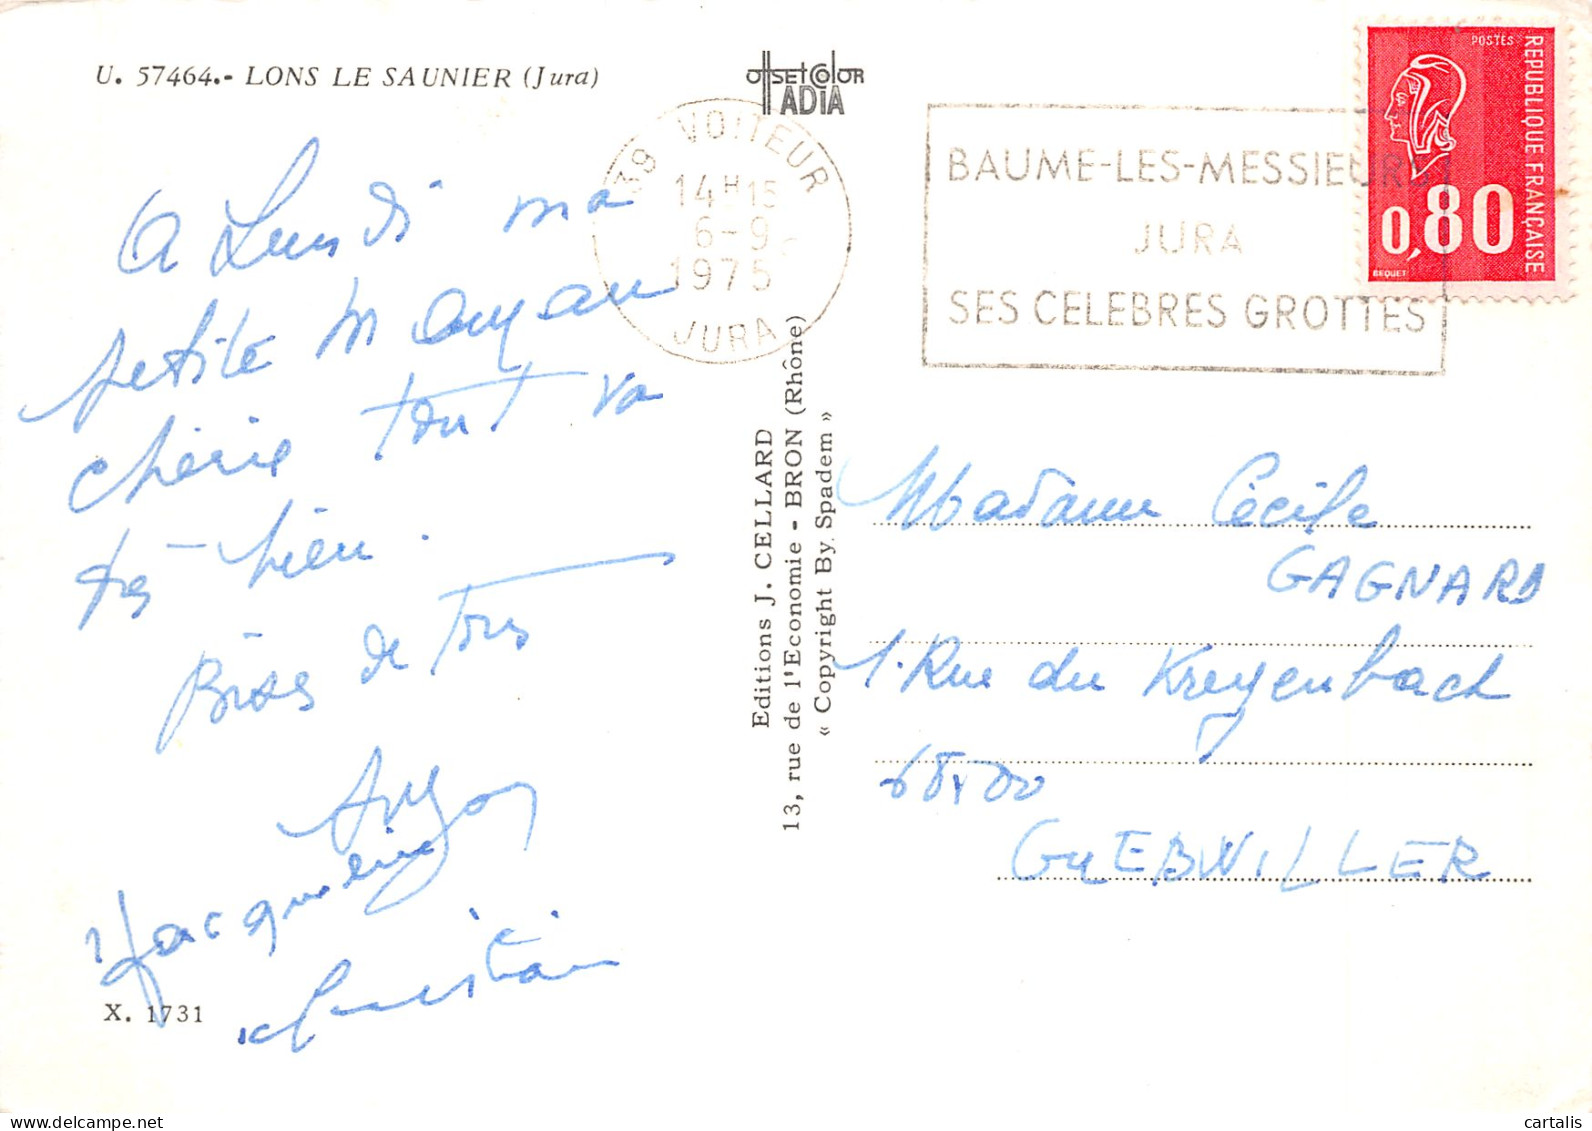 U. 57464.- LONS LE SAUNIER (Jura)
OFFSET COLOR
ADIA
39 VOITEUR
14 H 15
6-9
1975
JURA
BAUME-LES-MESSIEURS
JURA
SES CELEBRES GROTTES
POSTES
REPUBLIQUE FRANÇAISE
0,80
BEQUET
A Lundi ma
petite Maman
chérie tout va
très bien.
Bises de tous
Jacqueline
Christian
X. 1731
Editions J. CELLARD
13, rue de l'Economie - BRON (Rhône)
« Copyright By. Spadem »
Madame Cécile
GAGNARD
1. Rue du Kreyenbach
68500
GUEBWILLER
cartalis